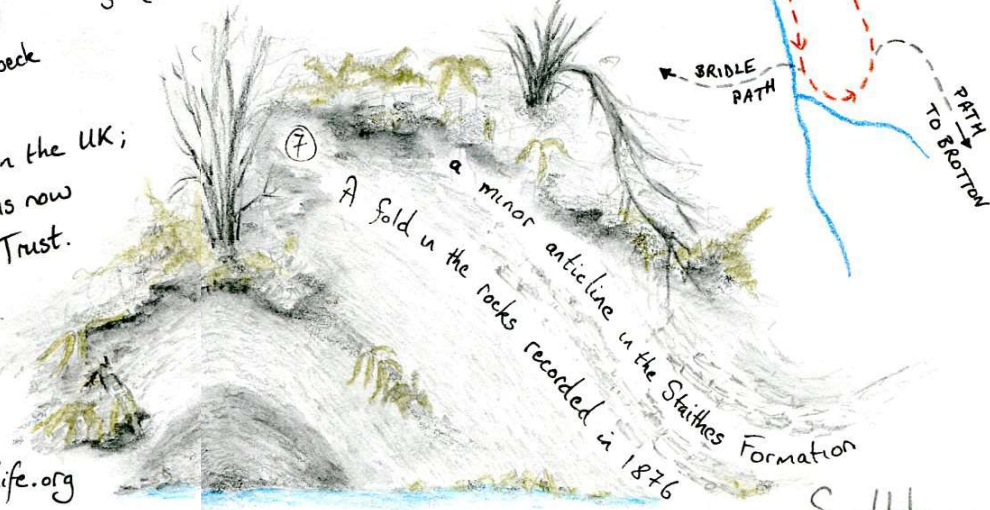 beck
in the UK;
is now
Trust.
life.org
7
a minor anticline in the Staithes Formation
A fold in the rocks recorded in 1876
BRIDLE
PATH
PATH
TO BROTTON